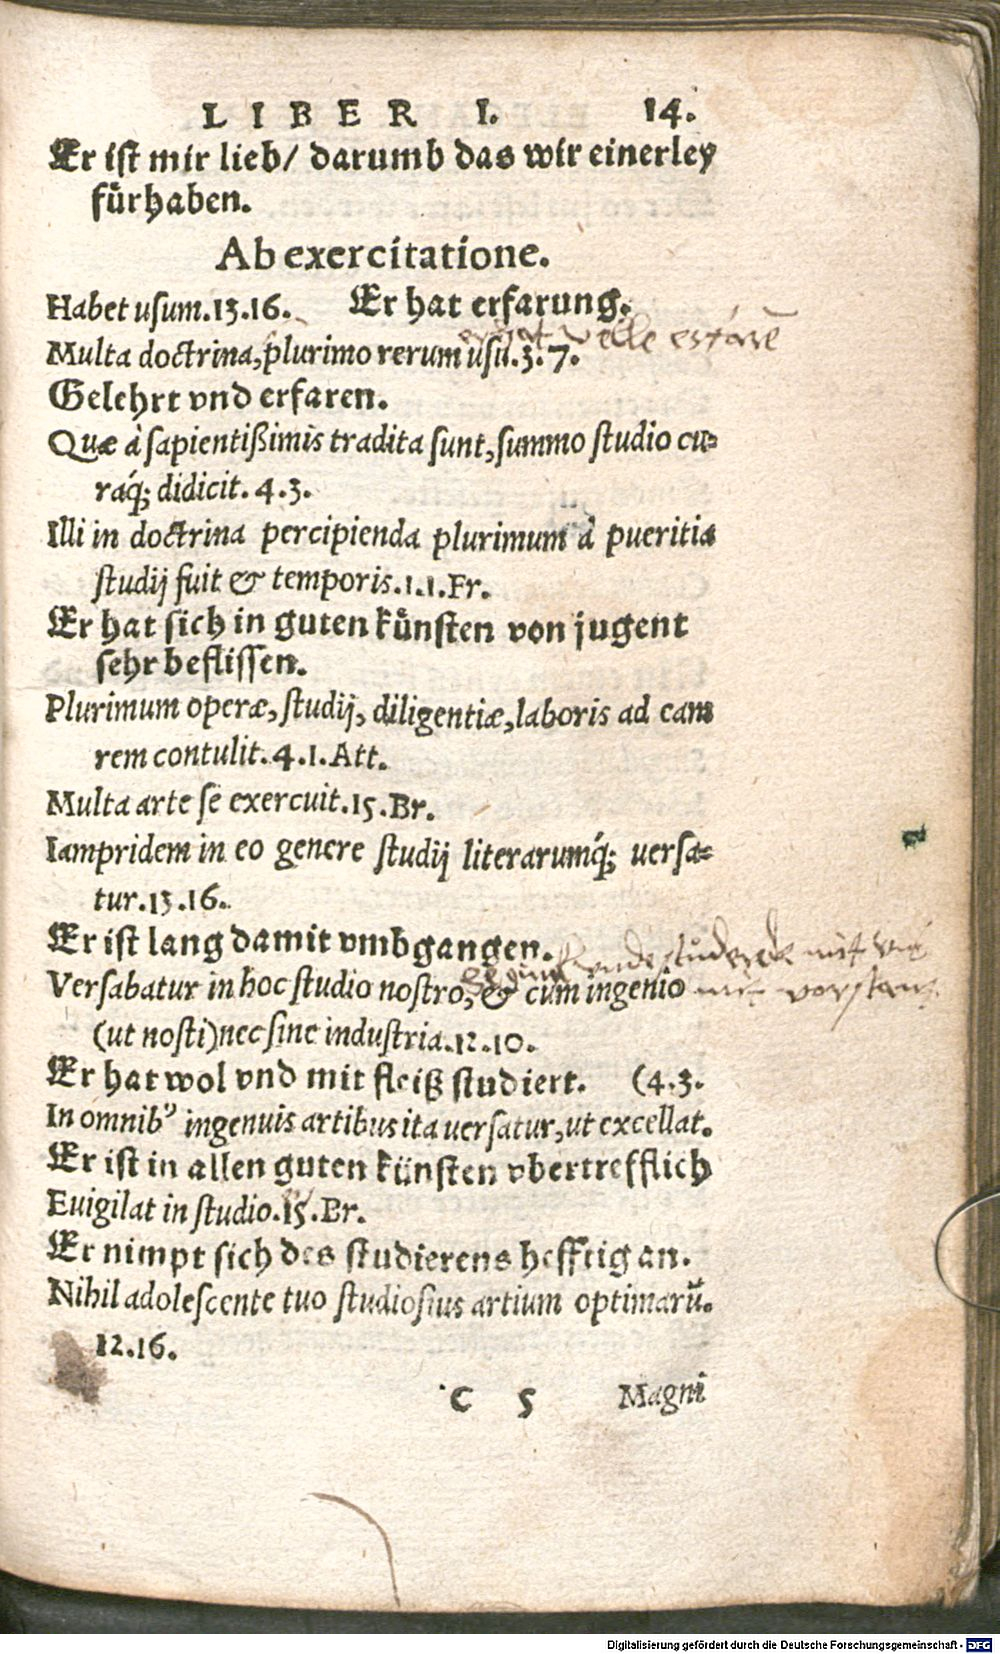 LIBER I. 14.
Er ist mir lieb/ darumb das wir einerley
fürhaben.
Ab exercitatione.
Habet usum.13.16. Er hat erfarung.
Multa doctrina, plurimo rerum usu.3.7.
Gelehrt vnd erfaren.
Quæ à sapientißimis tradita sunt, summo studio cu-
ráq; didicit.4.3.
Illi in doctrina percipienda plurimum à pueritia
studij fuit & temporis.1.1.Fr.
Er hat sich in guten künsten von jugent
sehr beflissen.
Plurimum operæ, studij, diligentiæ, laboris ad eam
rem contulit.4.1.Att.
Multa arte se exercuit.15.Br.
Iampridem in eo genere studij literarumq́; uersa-
tur.13.16.
Er ist lang damit vmbgangen.
Versabatur in hoc studio nostro, & cum ingenio
(ut nosti) nec sine industria.12.10.
Er hat wol vnd mit fleiß studiert. (4.3.
In omnibꝰ ingenuis artibus ita uersatur, ut excellat.
Er ist in allen guten künsten vbertrefflich
Euigilat in studio.15.Br.
Er nimpt sich des studierens hefftig an.
Nihil adolescente tuo studiosius artium optimarũ.
12.16.
C 5 Magni
Digitalisierung gefördert durch die Deutsche Forschungsgemeinschaft - DFG